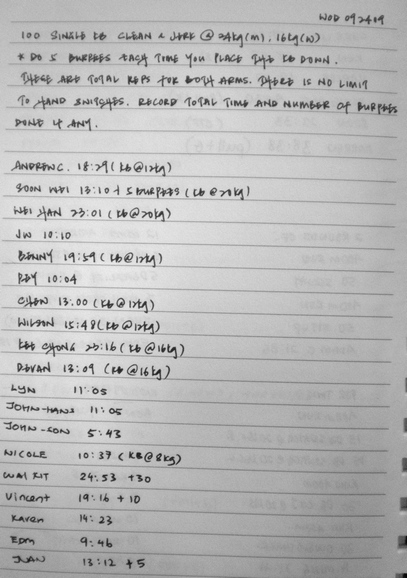 WOD 092409
100 SINGLE KB CLEAN & JERK @ 24kg(M), 16kg(W)
* DO 5 BURPEES EACH TIME YOU PLACE THE KB DOWN.
THESE ARE TOTAL REPS FOR BOTH ARMS. THERE IS NO LIMIT
TO HAND SWITCHES. RECORD TOTAL TIME AND NUMBER OF BURPEES
DONE IF ANY.
ANDREW C. 18:29 (KB@12kg)
SOON WEI 13:10 + 5 BURPEES (KB@20kg)
WEI HAN 23:01 (KB@20kg)
JW 10:10
BENNY 19:59 (KB@12kg)
REY 10:04
CHEN 13:00 (KB@12kg)
WILSON 15:48 (KB@12kg)
KEE CHONG 23:16 (KB@16kg)
DEVAN 13:09 (KB@16kg)
LYN 11:05
JOHN-HANS 11:05
JOHN-SON 5:43
NICOLE 10:37 (KB@8kg)
WAI KIT 24:53 +30
Vincent 19:16 + 10
Karen 14:23
EDM 9:46
JUAN 13:12 + 5